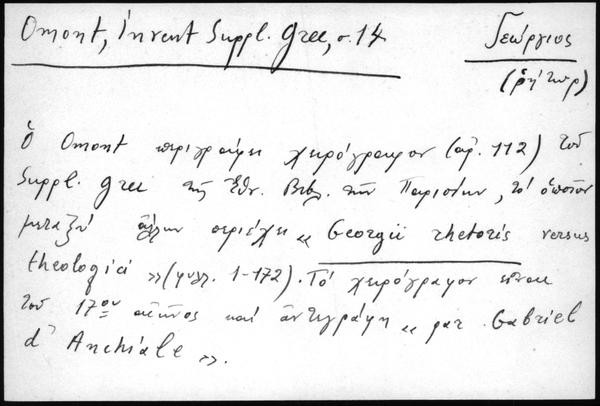 Omont, Invent Suppl. Grec, σ. 14
Γεώργιος
(ῥήτωρ)
Ὁ Omont περιγράφει χειρόγραφον (ἀρ. 112) τοῦ
Suppl. Grec τῆς Ἐθν. Βιβ. τῶν Παρισίων, τό ὁποῖον
μεταξύ ἄλλων περιέχει « Georgii rhetoris versus
theologici » (φυλλ. 1-172). Τό χειρόγραφον εἶναι
τοῦ 17ου αἰῶνος καί ἀντεγράφη « par Gabriel
d' Anchiale ».